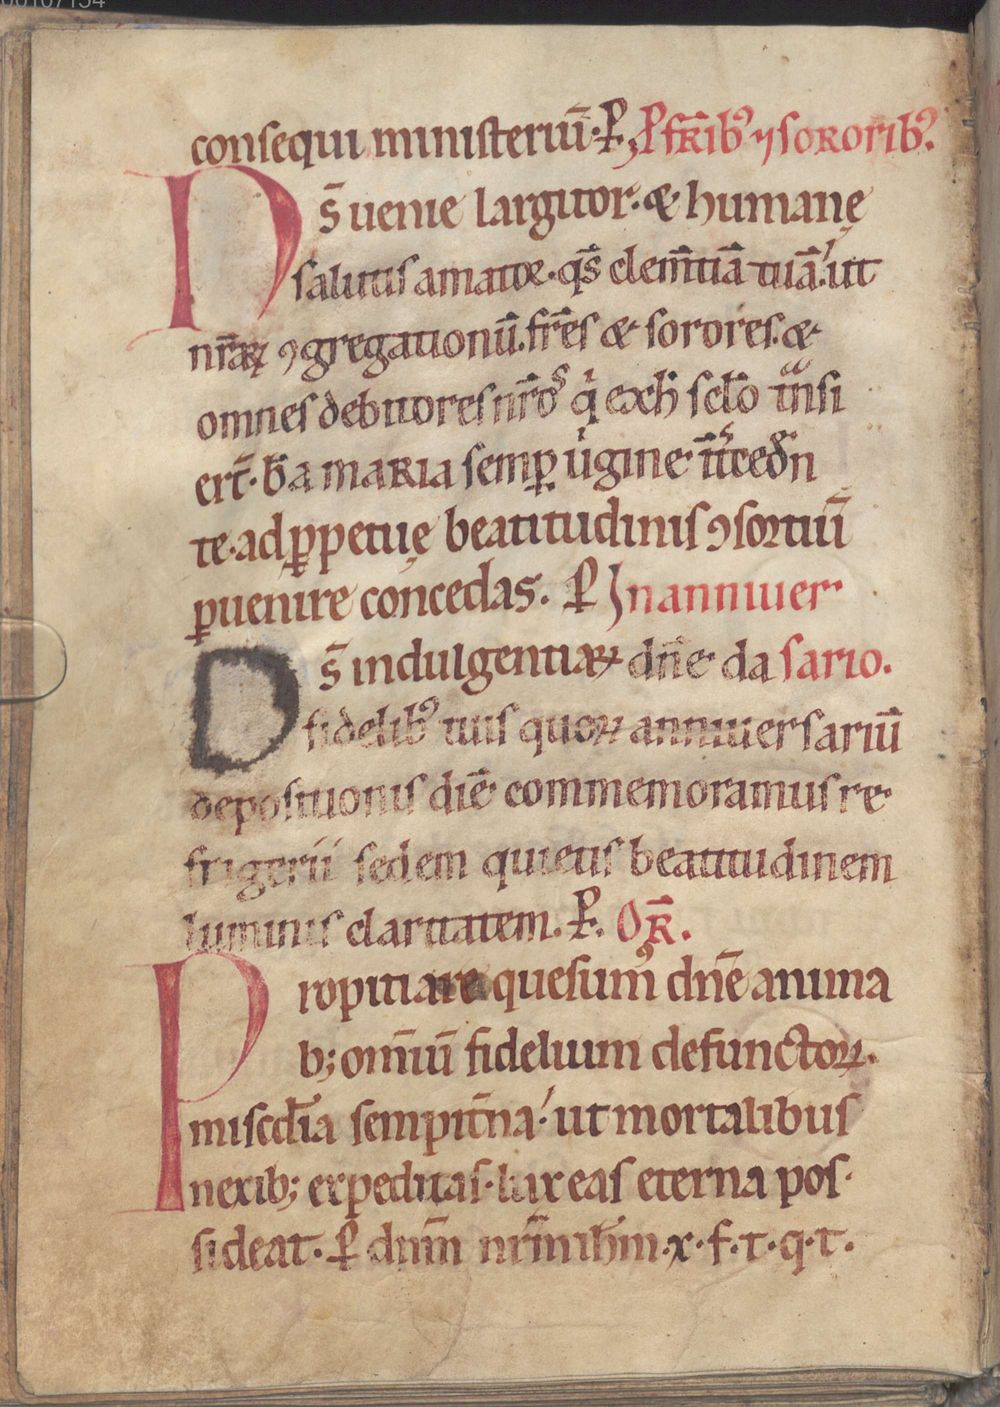 consequi ministeriū· P̱; P̱ fr̄ibꝰ ⁊ sororibꝰ.
Ds̄ uenie largitor· & humanę
salutis amator· qs̄ clem̄tiā tuā· ut
nr̄aꝝ ꝯgregationū· fr̄es & sorores· &
omnes debitores nr̄os qi exh̄ sc̄lo tn̄si
ert̄· bā maria semꝑ uigine int̄cedn
te· ad ꝑpetuę beatitudinis ꝯsortiū
ꝑuenire concedas. P̱ In anniuer
Ds̄ indulgentiaꝝ dn̄e· da sario.
fidelibꝰ tuis quoꝝ anniuersariū
depositionis diē commemoramus re
frigerii sedem quietis beatitudinem
luminis claritatem. P̱. OR̄.
Propitiare quesumꝰ dn̄e anima
b; om̄iū fidelium defunctoꝝ.
miscd̄ia sempit̄na· ut mortalibus
nexib; expeditas· lux eas eterna pos·
sideat. P̱ dnm̄ nrm̄ ihm̄· x· f· t· q· t.